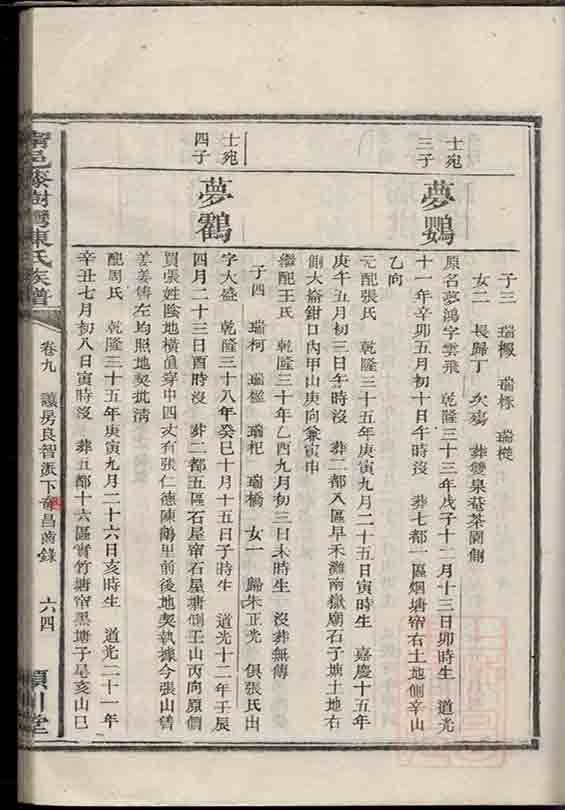 子三 瑞概 瑞栐 瑞槤
女二 長歸丁 次殤 葬雙泉菴茶園側
士宛
三子
夢鸚
原名夢鴻字雲飛 乾隆三十三年戊子十二月十三日卯時生 道光
十一年辛卯五月初十日午時沒 葬七都一區烟塘帘右土地側辛山
乙向
元配張氏 乾隆三十五年庚寅九月二十五日寅時生 嘉慶十五年
庚午五月初三日午時沒 葬二都八區早禾灘南嶽廟石子塘土地右
側大崙鉗口內甲山庚向兼寅申
繼配王氏 乾隆三十年乙酉九月初三日未時生 沒葬無傳
子四 瑞柯 瑞槎 瑞杞 瑞橋 女一 歸朱正光 俱張氏出
士宛
四子
夢鸛
字大盛 乾隆三十八年癸巳十月十五日子時生 道光十二年壬辰
四月二十三日酉時沒 葬二都五區石屋帘石屋塘側壬山丙向原價
買張姓陰地橫直穿中四丈有張仁德陳鶴里前後地契執據今張山曾
姜姜售左均照地契批清
配周氏 乾隆三十五年庚寅九月二十六日亥時生 道光二十一年
辛丑七月初八日寅時沒 葬五都十六區實竹塘帘黑塘子尾亥山巳
甯邑漆樹灣陳氏族譜
卷九 讓房良智派下 昌 錄 六四
潁川堂